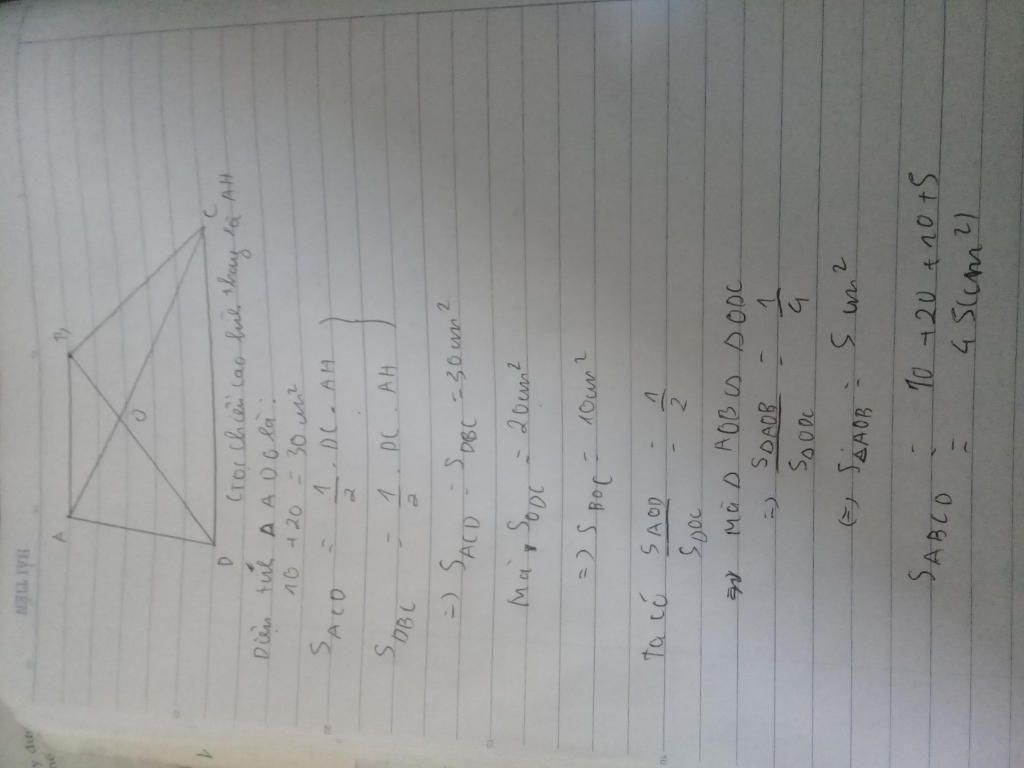 HẢI TIẾN
A B
O
D C
Gọi chiều cao hình thang là AH
Diện tích Δ ADC là:
10 + 20 = 30 cm²
S ACD = 1/2 . DC . AH
S DBC = 1/2 . DC . AH
=) S ACD = S DBC = 30cm²
Mà S ODC = 20cm²
=) S BOC = 10cm²
Ta có S AOD / S DOC = 1/2
Mà Δ AOB ∽ Δ ODC
=) S ΔAOB / S ΔODC = 1/4
(=) S ΔAOB = 5 cm²
S ABCD = 10 + 20 + 10 + 5
= 45(cm²)